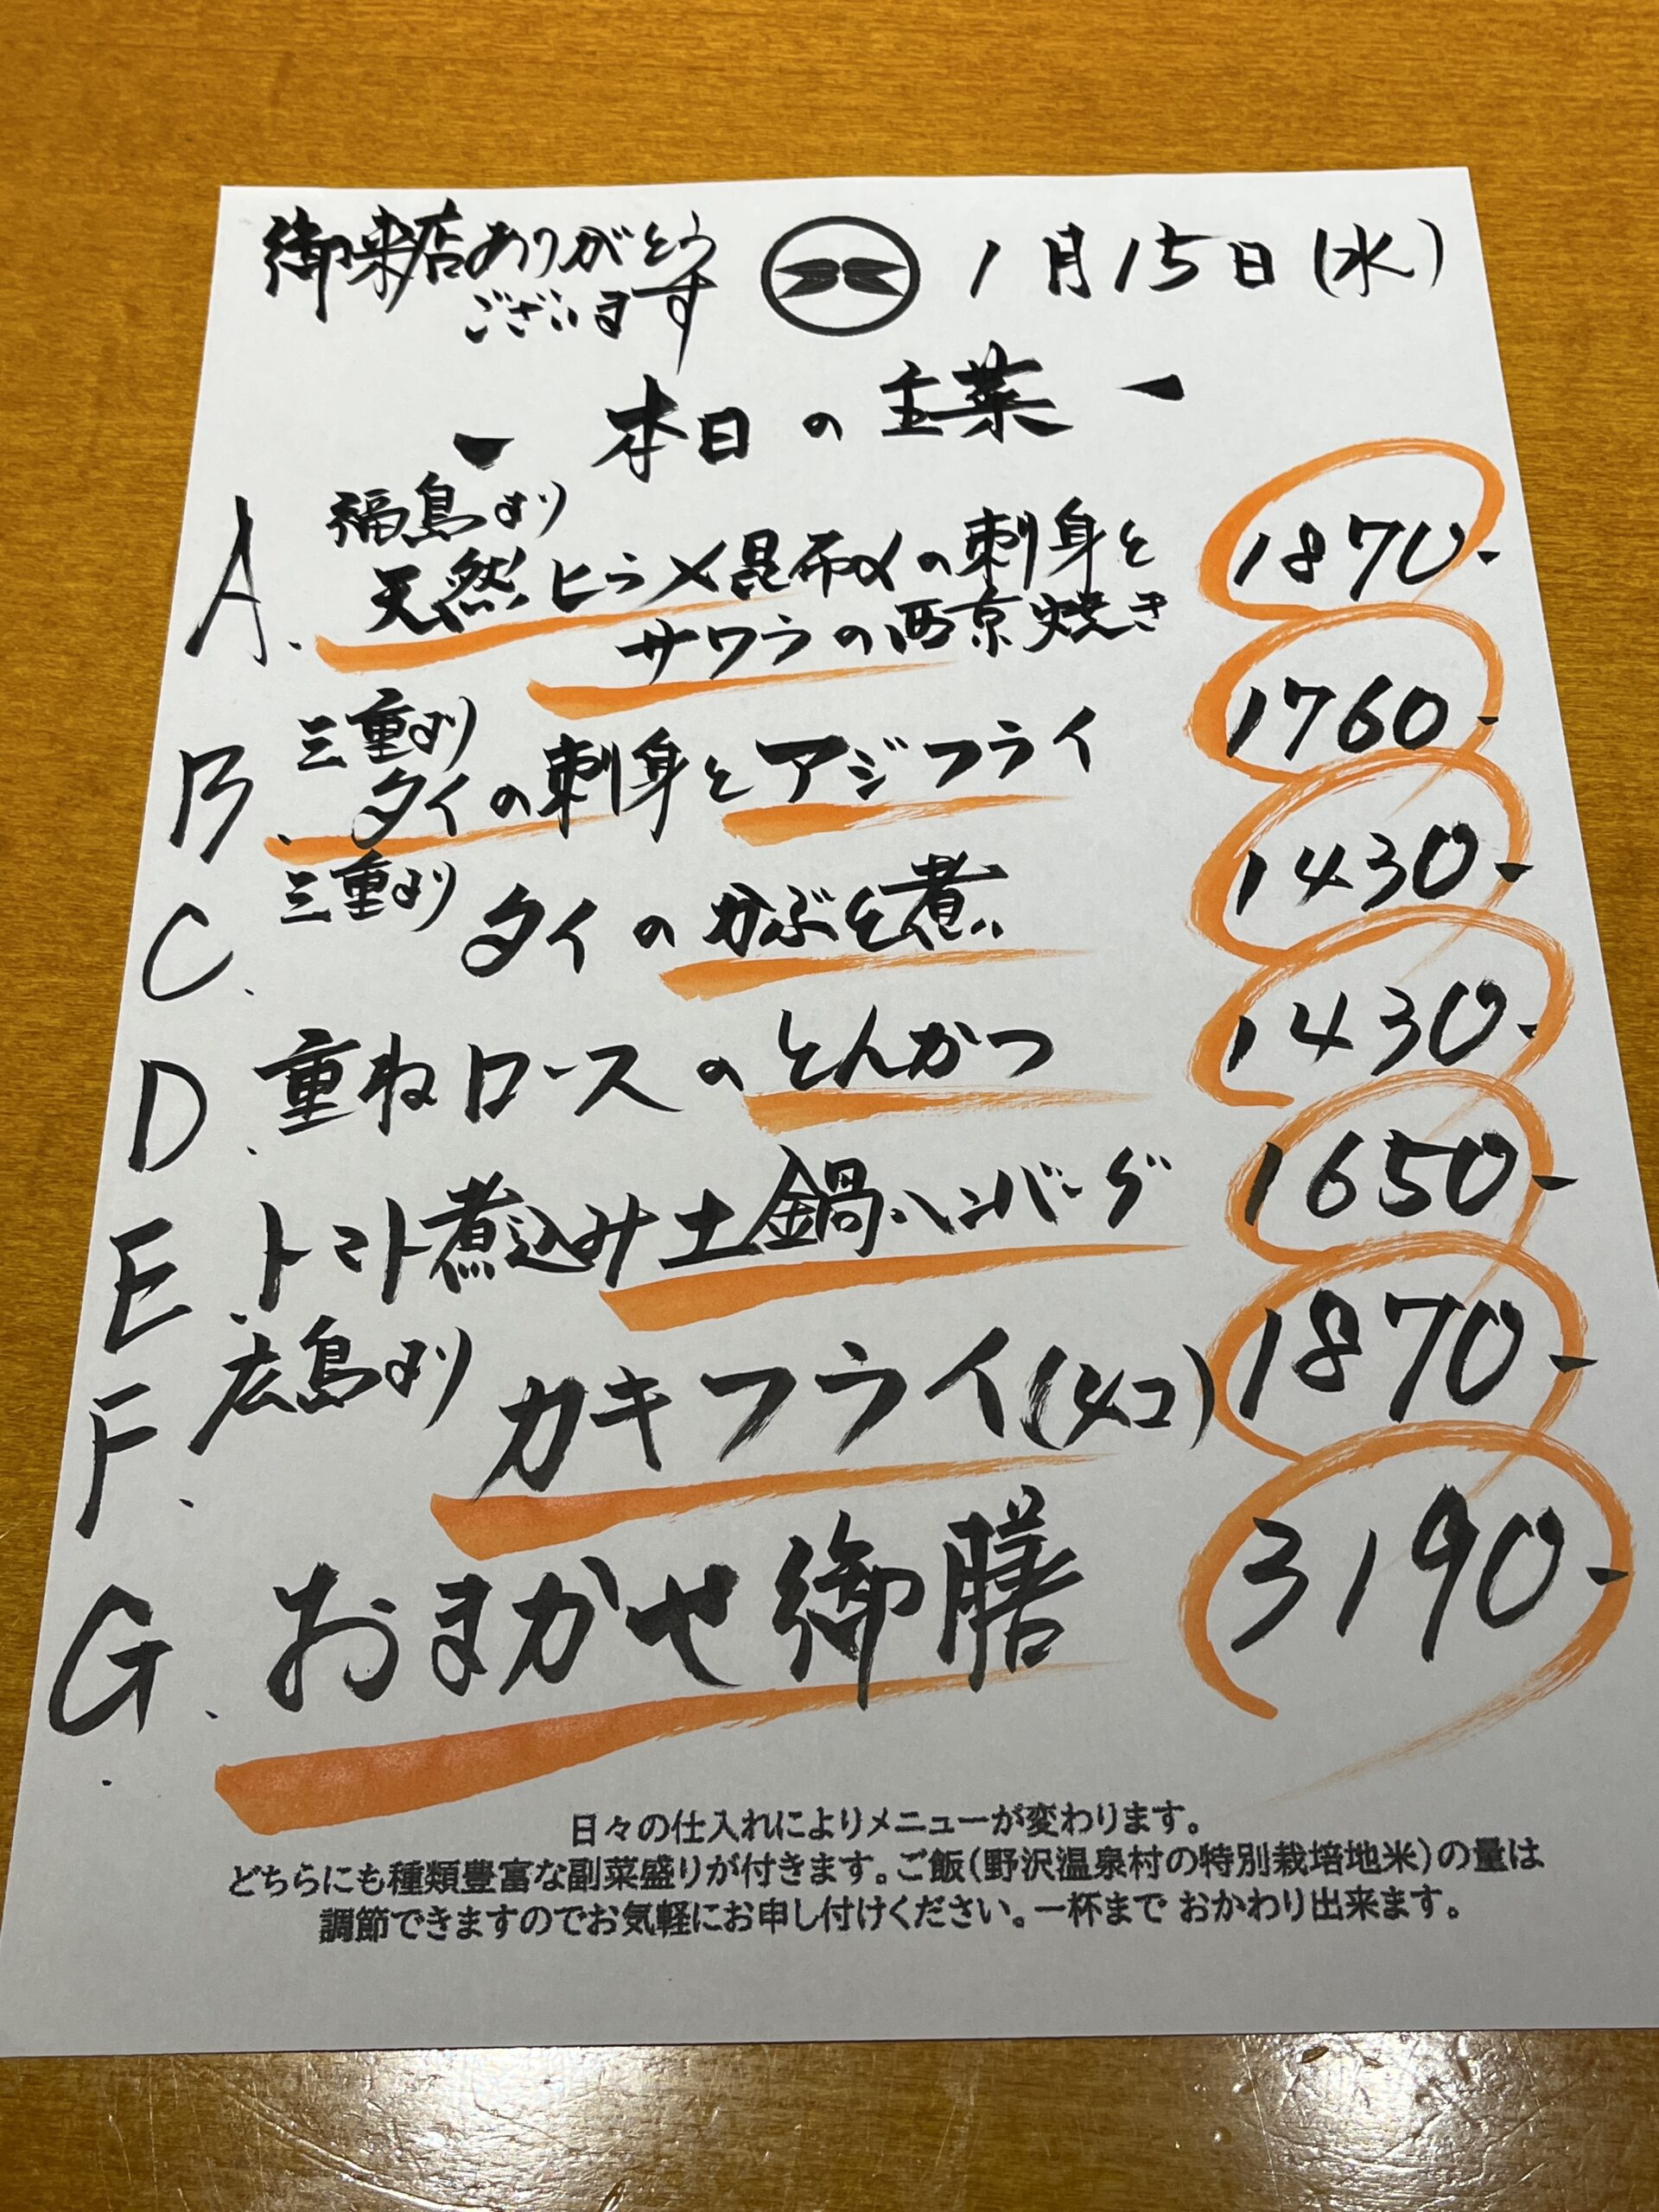 御来店ありがとう
ございます
1月15日(水)
- 本日の主菜 -
A. 福島より
天然ヒラメ昆布〆の刺身と
サワラの西京焼き
1870-
B. 三重より
タイの刺身とアジフライ
1760-
C. 三重より
タイのかぶと煮
1430-
D. 重ねロースのとんかつ
1430-
E. トマト煮込み土鍋ハンバーグ
1650-
F. 広島より
カキフライ(4コ)
1870-
G. おまかせ御膳
3190-
日々の仕入れによりメニューが変わります。
どちらにも種類豊富な副菜盛りが付きます。ご飯(野沢温泉村の特別栽培地米)の量は
調節できますのでお気軽にお申し付けください。一杯まで おかわり出来ます。